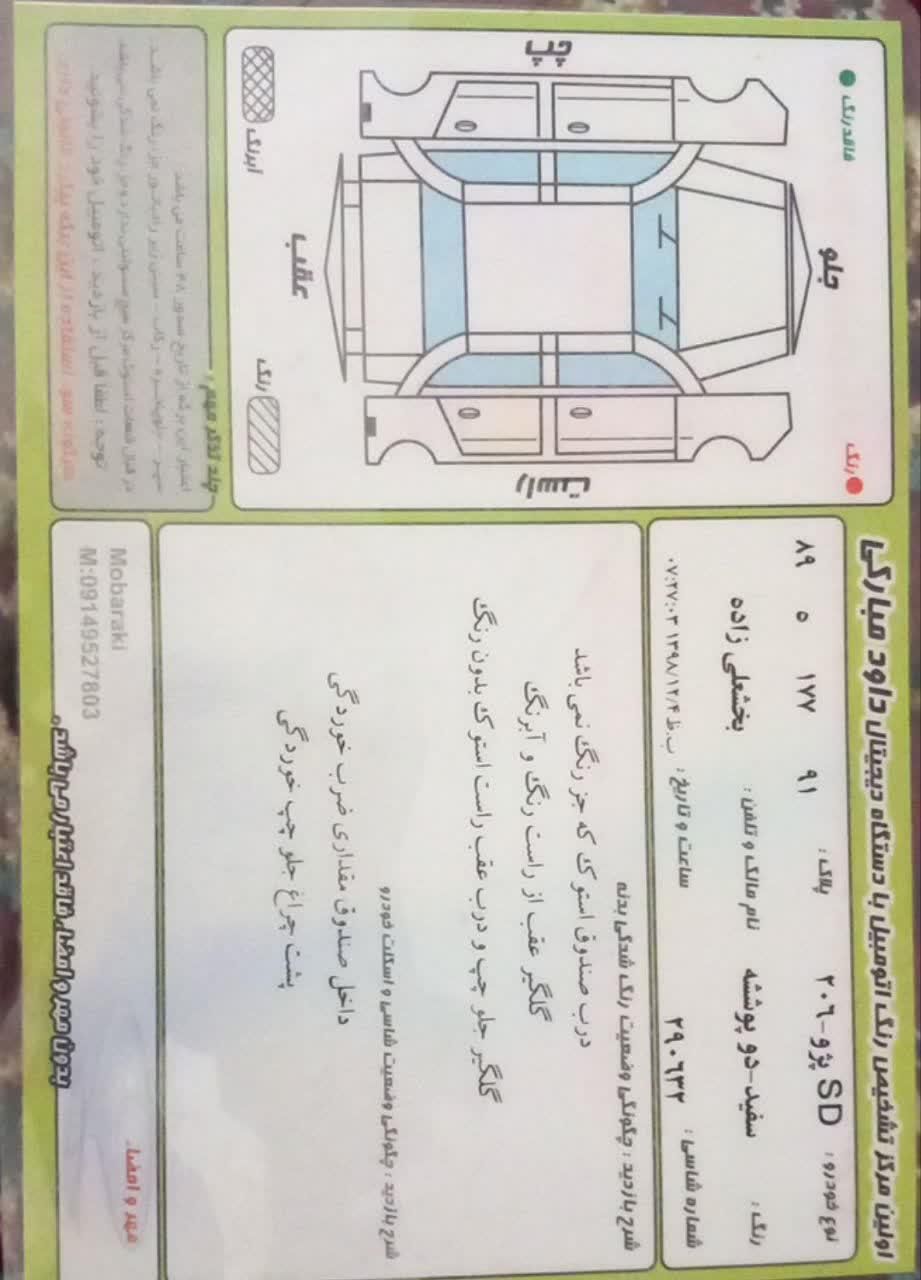 اولین مرکز تشخیص رنگ اتومبیل با دستگاه دیجیتال داود مبارکی
نوع خودرو: پژو-۲۰۶ SD پلاک: ۹۱ ۱۷۷ ۵ ۸۹
رنگ: سفید-دو پوششه نام مالک و تلفن: بخشعلی زاده
شماره شاسی: ۲۹۰۶۳۲ ساعت و تاریخ: ب.ظ ۱۳۹۸/۱۲/۴ ۰۷:۲۷:۰۳
شرح بازدید: چگونگی وضعیت رنگ شدگی بدنه
درب صندوق استوک که جز رنگ نمی باشد
گلگیر عقب از راست رنگ و آبرنگ
گلگیر جلو چپ و درب عقب راست استوک بدون رنگ
شرح بازدید: چگونگی وضعیت شاسی و اسکلت خودرو
داخل صندوق مقداری ضرب خوردگی
پشت چراغ جلو چپ خوردگی
مهر و امضا.
Mobaraki
M:09149527803
بدون مهر و امضا، فاقد اعتبار می باشد.
رنگ
فاقد رنگ
جلو
چپ
راست
عقب
رنگ
آبرنگ
چند تذکر مهم:
اعتبار این برگه از تاریخ صدور ۴۸ ساعت می باشد
توجه: لطفا قبل از بازدید، اتومبیل خود را بشوئید